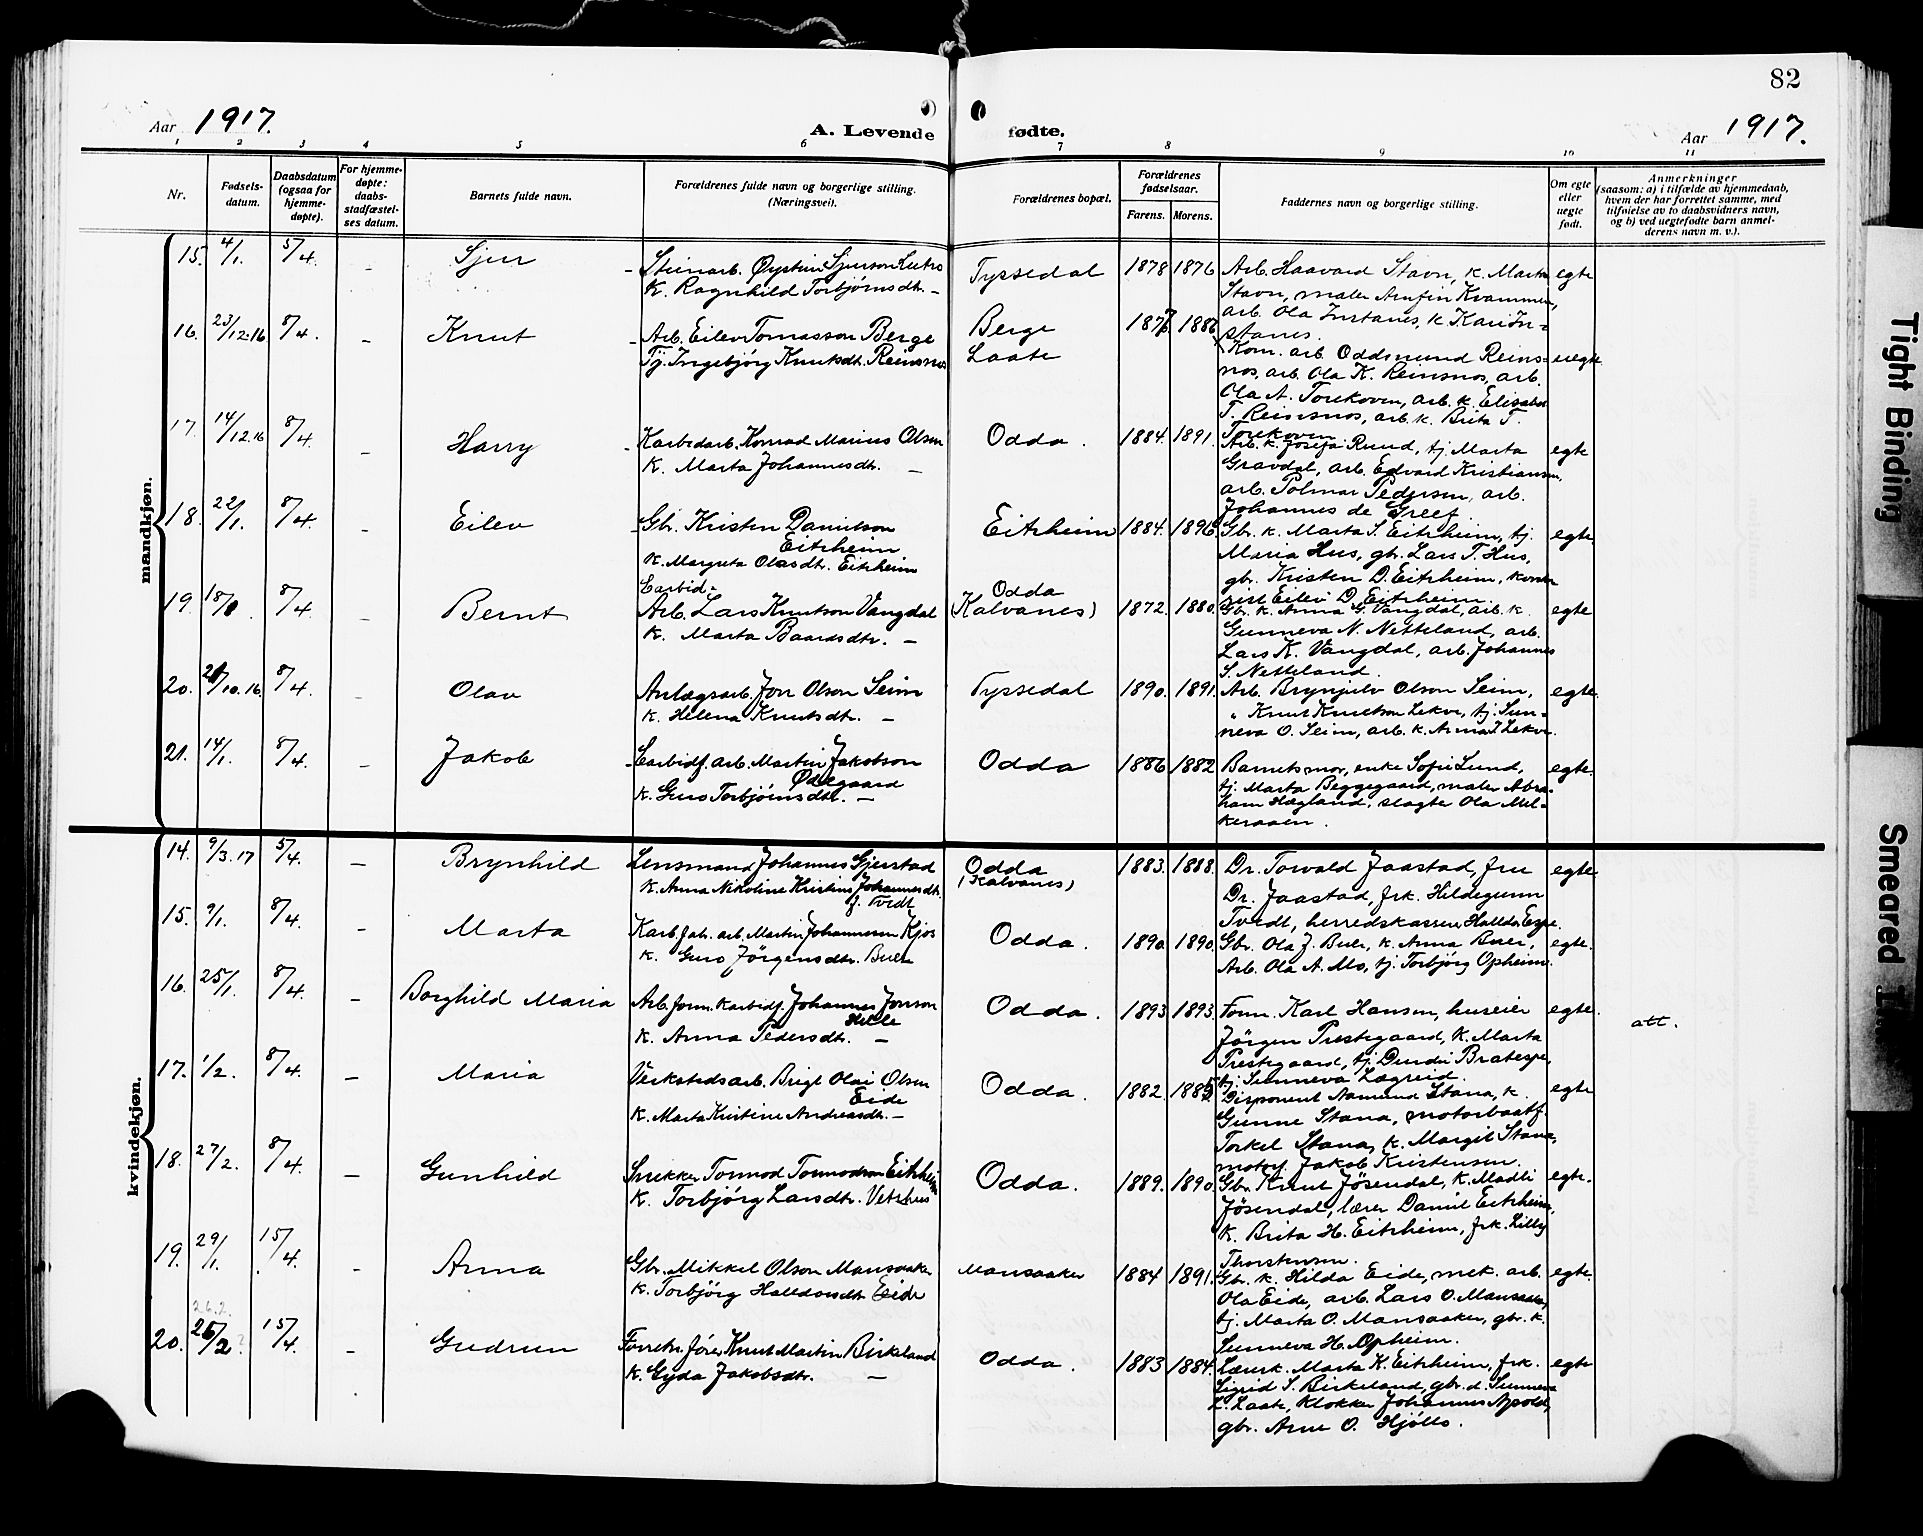 82
Aar 1917.
A. Levende fødte.
Aar 1917.
1 2 3 4 5 6 7 8 9 10 11
Nr.
Fødsels-
datum.
Daabsdatum
(ogsaa for
hjemme-
døpte).
For hjemme-
døpte:
daabs-
stadfæstel-
ses datum.
Barnets fulde navn.
Forældrenes fulde navn og borgerlige stilling.
(Næringsvei).
Forældrenes bopæl.
Forældrenes
fødselsaar.
Farens. Morens.
Faddernes navn og borgerlige stilling.
Om egte
eller
uegte
født.
Anmerkninger
(saasom: a) i tilfælde av hjemmedaab,
hvem der har forrettet samme, med
tilføielse av to daabsvidners navn,
og b) ved uegtefødte barn anmel-
derens navn m. v.).
mandkjøn.
15. 4/1. 5/4. - Sjur
Øystein Sjurson
k. Ragnhild Torbjørnsdtr. -
Tyssedal 1878 1876
Arb. Haavard Stavn, k. Marta
Stavn, maler Arnfin Kvammen,
arb. Ola Instanes, k. Kari In-
stanes.
egte
16. 23/12.16 8/4. - Knut
Arb. Eilev Tomasson Berge
Tj. Ingebjörg Knutsdt. Reinsnos
Berge
Laate
1886
Kom. arb. Oddmund Reins-
nos, arb. Ola K. Reinsnos, arb.
Ola A. Torekoven, arb. k. Elisabet
T. Reinsnos, arb. k. Brita T.
Torekoven
uegte
17. 14/12.16 8/4. - Harry
Karbedarb. Konrad Marius Olsen
k. Marta Johannesdt. -
Odda. 1884. 1891.
Arb. k. Josefa Rund, tj. Marta
Gravdal, arb. Edvard Kristiansen,
arb. Polmar Pedersen, arb.
Johannes de Greef.
egte
18. 22/1. 8/4. - Eilev
Gbr. Kristen Danielson
Eitrheim
k. Margreta Olasdt. Eitrheim
Eitrheim 1884. 1896
Gbr. k. Marta S. Eitrheim, tj.
Maria Hus, gbr. Lars T. Hus,
gbr. Kristen D. Eitrheim,
Eilev D. Eitrheim.
egte.
19. 8/4. - Bernt
Carbid-
Arb. Lars Knutson Vangdal
k. Marta Baardsdtr. -
Odda
(Kalvanes)
1872. 1880.
Gbr. k. Anna G. Vangdal, arb. k.
Gunneva N. Netteland, arb.
Lars K. Vangdal, arb. Johannes
S. Netteland.
egte
20. /10.16. 8/4. - Olav
Anlægsarb. Jon Olson Seim
k. Helena Knutsdt. -
Tyssedal 1890. 1891.
Arb. Brynjulv Olson Seim,
" Knut Knutson Lekve, tj. Sun-
neva O. Seim, arb. k. Anna Lekve.
egte.
21. 14/1. 8/4. - Jakob
Carbidf. arb. Martin Jakobson
Ødegaard
k. Guro Torbjörnsdt. -
Odda 1886 1882
Barnets mor, enke Sofie Lund,
tj. Marta Beggegaard, maler Abra-
ham Hægland, slagter Ola Mel-
keraaen.
egte.
kvindekjøn.
14. 9/3.17 5/4. - Brynhild
Lensmand Johannes Gjerstad
k. Anna Nikoline Kristine Johannesdt.
f. Tvedt
Odda
(Kalvanes)
1883. 1888.
Dr. Torvald Jaastad, fru
Dr. Jaastad, frk. Hildegunn
Tvedt, herredskasserer Halldor Espe.
egte.
15. 9/1. 8/4. - Marta
Karb.fab. arb. Martin Johannessen Kjos
k. Guro Jörgensdtr. Buer
Odda. 1890. 1890.
Gbr. Ola J. Buer, k. Anna Buer,
Arb. Ola A. Mo, tj. Torbjörg Opheim.
egte.
16. 25/1. 8/4. - Borghild Maria
Arb.form. karbidf. Johannes Jonson
Hille
k. Anna Pedersdt. -
Odda. 1893 1893.
Form. Karl Hansen, huseier
Jörgen Prestegaard, k. Marta
Prestegaard, tj. Bratespe,
tj. Sunneva Lægreid.
egte.
att.
17. 1/2. 8/4. - Maria
Verkstedsarb. Brigt Olai Olsen
Eide
k. Marta Kristine Andreasdt. -
Odda. 1882.
Disponent Aamund Stana, k.
Gunne Stana, motorbaatf.
Torkel Stana, k. Margit Stana,
motorf. Jakob Kristensen.
egte
18. 27/2. 8/4. - Gunhild
Snikker Tormod Tormodson Eitrheim
k. Torbjörg Larsdtr. Vetrhus
Odda. 1889. 1890.
Gbr. Knut Jösendal, k. Madli
Jösendal, lærer Daniel Eitrheim,
k. Brita H. Eitrheim, frk. Lilly
Thorstensen.
egte.
19. 29/1. 15/4. - Anna
Gbr. Mikkel Olson Mansaaker
k. Torbjörg Halldorsdt. Eide
Mansaaker 1884 1891.
Gbr. k. Hilda Eide, mek. arb.
Ola Eide, arb. Lars O. Mansaaker,
tj. Marta O. Mansaaker, gbr. k.
Sunneva H. Opheim.
egte.
26.2.
20. 26/2? 15/4. - Gudrun
Forretn.fører Knut Martin Birkeland
k. Gyda Jakobsdtr. -
Odda. 1883 1884.
Lærerk. Marta K. Eitrheim, frk.
Sigrid S. Birkeland, gbr. d. Sunneva
L. Laate, klokker Johannes Apold,
gbr. Arne O. Hjöllo.
egte
Tight Binding
Smeared